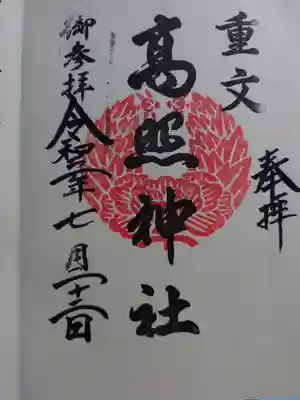 重文
奉拝
高照神社
御参拝 令和二年七月二十二日